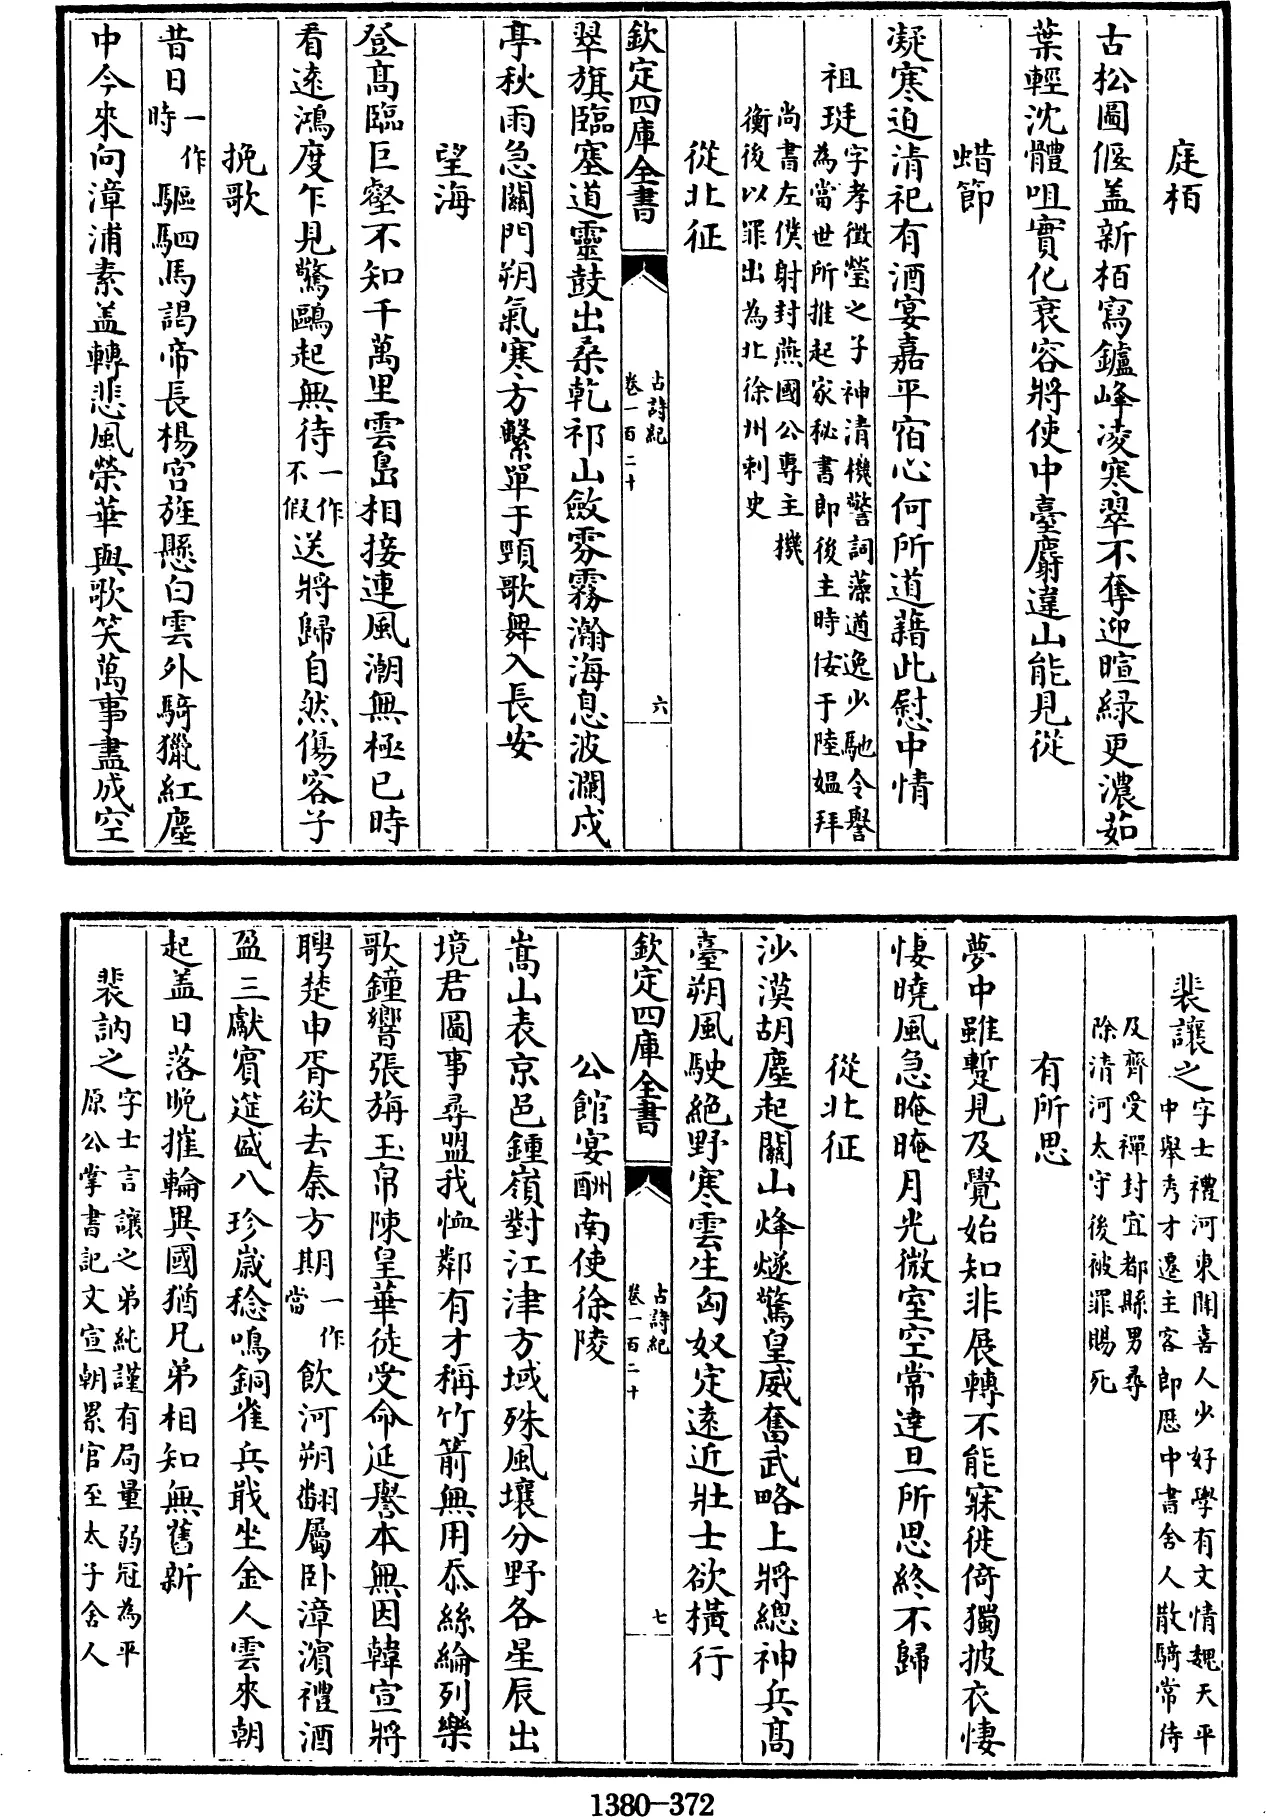 庭栢
古松圖偃盖新栢寫鑪峰凌寒翠不奪迎暄緑更濃茹
葉輕沈體咀實化衰容將使中臺麝違山能見從
蜡節
凝寒迫清祀有酒宴嘉平宿心何所道藉此慰中情
祖珽字孝徴瑩之子神清機警詞藻遒逸少馳令譽
為當世所推起家秘書郎後主時佞于陸媪拜
尚書左僕射封燕國公專主機
衡後以罪出為北徐州刺史
從北征
欽定四庫全書
古詩紀
卷一百二十
六
翠旗臨塞道靈鼓出桑乾祁山斂雰霧瀚海息波瀾戍
亭秋雨急關門朔氣寒方繫單于頸歌舞入長安
望海
登髙臨巨壑不知千萬里雲島相接連風潮無極已時
看逺鴻度乍見驚鷗起無待一作不假送將歸自然傷客子
挽歌
昔日一作時驅駟馬謁帝長楊宫旌懸白雲外騎獵紅塵
中今來向漳浦素盖轉悲風榮華與歌笑萬事盡成空
裴讓之字士禮河東聞喜人少好學有文情魏天平
中舉秀才遷主客郎歴中書舍人散騎常侍
及齊受禪封宜都縣男尋
除清河太守後被罪賜死
有所思
夢中雖蹔見及覺始知非展轉不能寐徙倚獨披衣悽
悽曉風急晻晻月光微室空常達旦所思終不歸
從北征
沙漠胡塵起關山烽燧驚皇威奮武略上將總神兵髙
臺朔風駛絶野寒雲生匈奴定逺近壯士欲橫行
欽定四庫全書
古詩紀
卷一百二十
七
公館宴酬南使徐陵
嵩山表京邑鍾嶺對江津方域殊風壤分野各星辰出
境君圖事尋盟我恤鄰有才稱竹箭無用忝絲綸列樂
歌鐘響張旃玉帛陳皇華徒受命延譽本無因韓宣將
聘楚申胥欲去秦方期一作當飲河朔翻屬卧漳濵禮酒
盈三獻賓筵盛八珍歳稔鳴銅雀兵戢坐金人雲來朝
起盖日落晩摧輪異國猶兄弟相知無舊新
裴訥之字士言讓之弟純謹有局量弱冠為平
原公掌書記文宣朝累官至太子舍人
1380-372